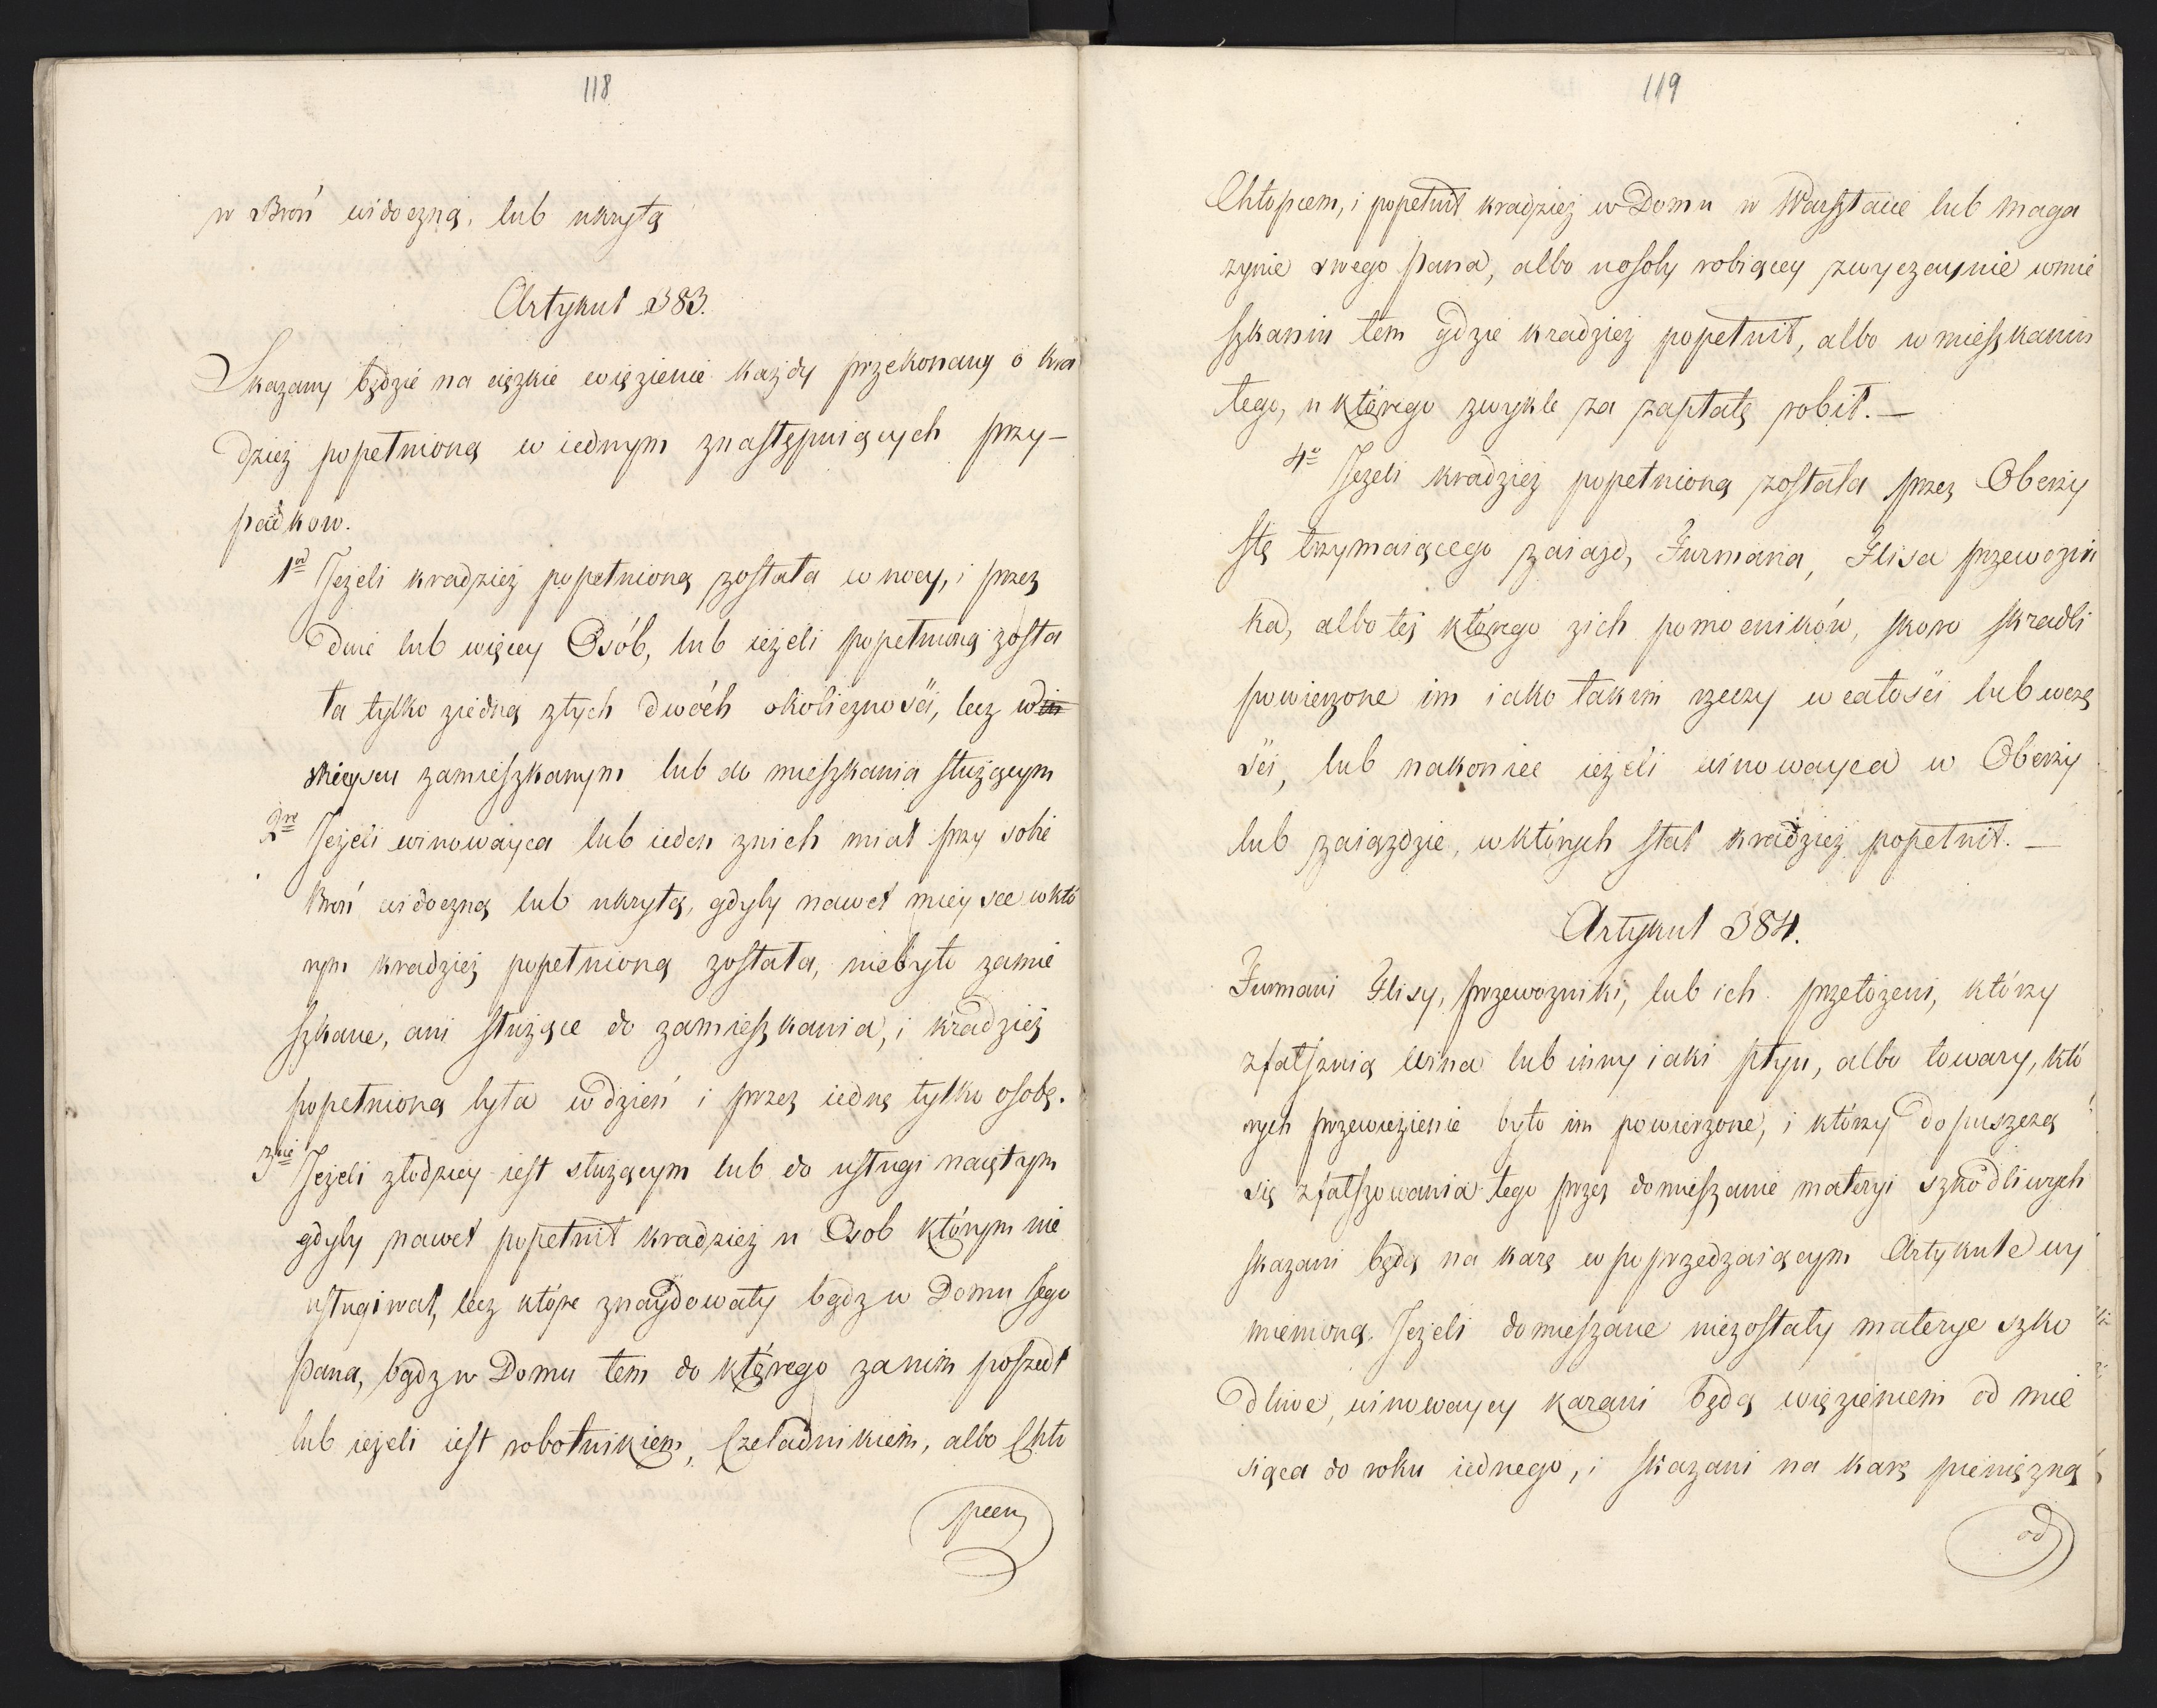 118
w Broń widoczną, lub ukrytą
Artykuł 383.
Skazany będzie na ciężkie więzienie każdy przekonany o kra
dzież popełnioną w iednym znastępuiących przy-
padkow.
1o Jeżeli kradzież popełnioną została w nocy, i przez
dwie lub więcey Osób, lub ieżeli popełnioną zosta
ła tylko ziedną ztych dwóch okoliczności, lecz w
mieyscu zamieszkanym lub do mieszkania służącym
2re Jeżeli winowayca lub ieden znich miał przy sobie
Broń widoczną lub ukrytą, gdyby nawet mieysce wktó
rym kradzież popełnioną została, niebyło zamie
szkane, ani służące do zamieszkania, i kradzież
popełnioną była wdzień i przez iedną tylko osobę.
3cie Jeżeli złodziey iest służącym lub do usługi naiętym
gdyby nawet popełnił kradzież u Osob którym nie
usługiwał, lecz które znaydowały bądz w Domu Jego
Pana, bądz w Domu tem do którego zanim poszedł
lub ieżeli iest robotnikiem, Czeladnikiem, albo Chło
pcem
119
Chłopcem, i popełnił kradzież w Domu w Warsztacie lub maga
zynie swego Pana, albo uosoby robiącey zwyczaynie wmie
szkaniu tem gdzie kradzież popełnił, albo w mieszkaniu
tego, u którego zwykle za zapłatę robił. —
4o Jeżeli kradzież popełnioną została przez Oberży
stę trzymaiącego zaiazd, Furmana, Flisa przewoźni
ka, albo też którego zich pomocników, skoro skradli
powierzone im iako takim rzeczy w całości lub wczę
ści, lub nakoniec ieżeli winowayca w Oberży
lub zaiazdzie, wktórych stał kradzież popełnił. —
Artykuł 384.
Furmani Flisy, przewoźniki, lub ich przełożeni, którzy
zfałszuią wina lub inny iaki płyn, albo towary, któ
rych przewiezienie było im powierzone, i którzy dopuszczą
się zfałszowania tego przez domieszanie materyi szkodliwych
skazani będą na karę w poprzedzaiącym Artykule wy
mienioną. Jeżeli domieszane niezostały materye szko
dliwe, winowaycy karani będą więzieniem od mie
siąca do roku iednego, i skazani na karę pieniężną
od